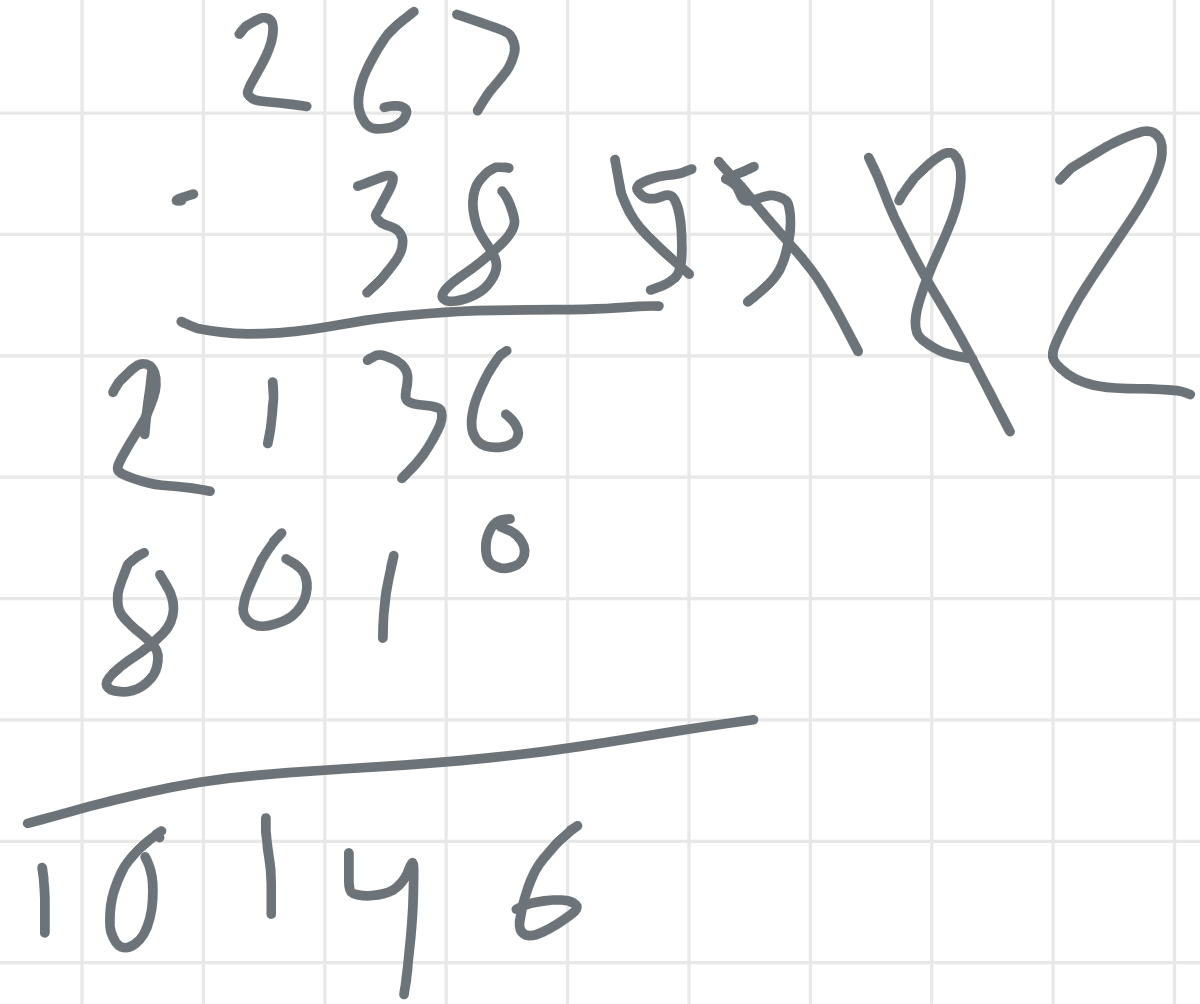 267
- 38 5 5 2 2
2136
8010
10146